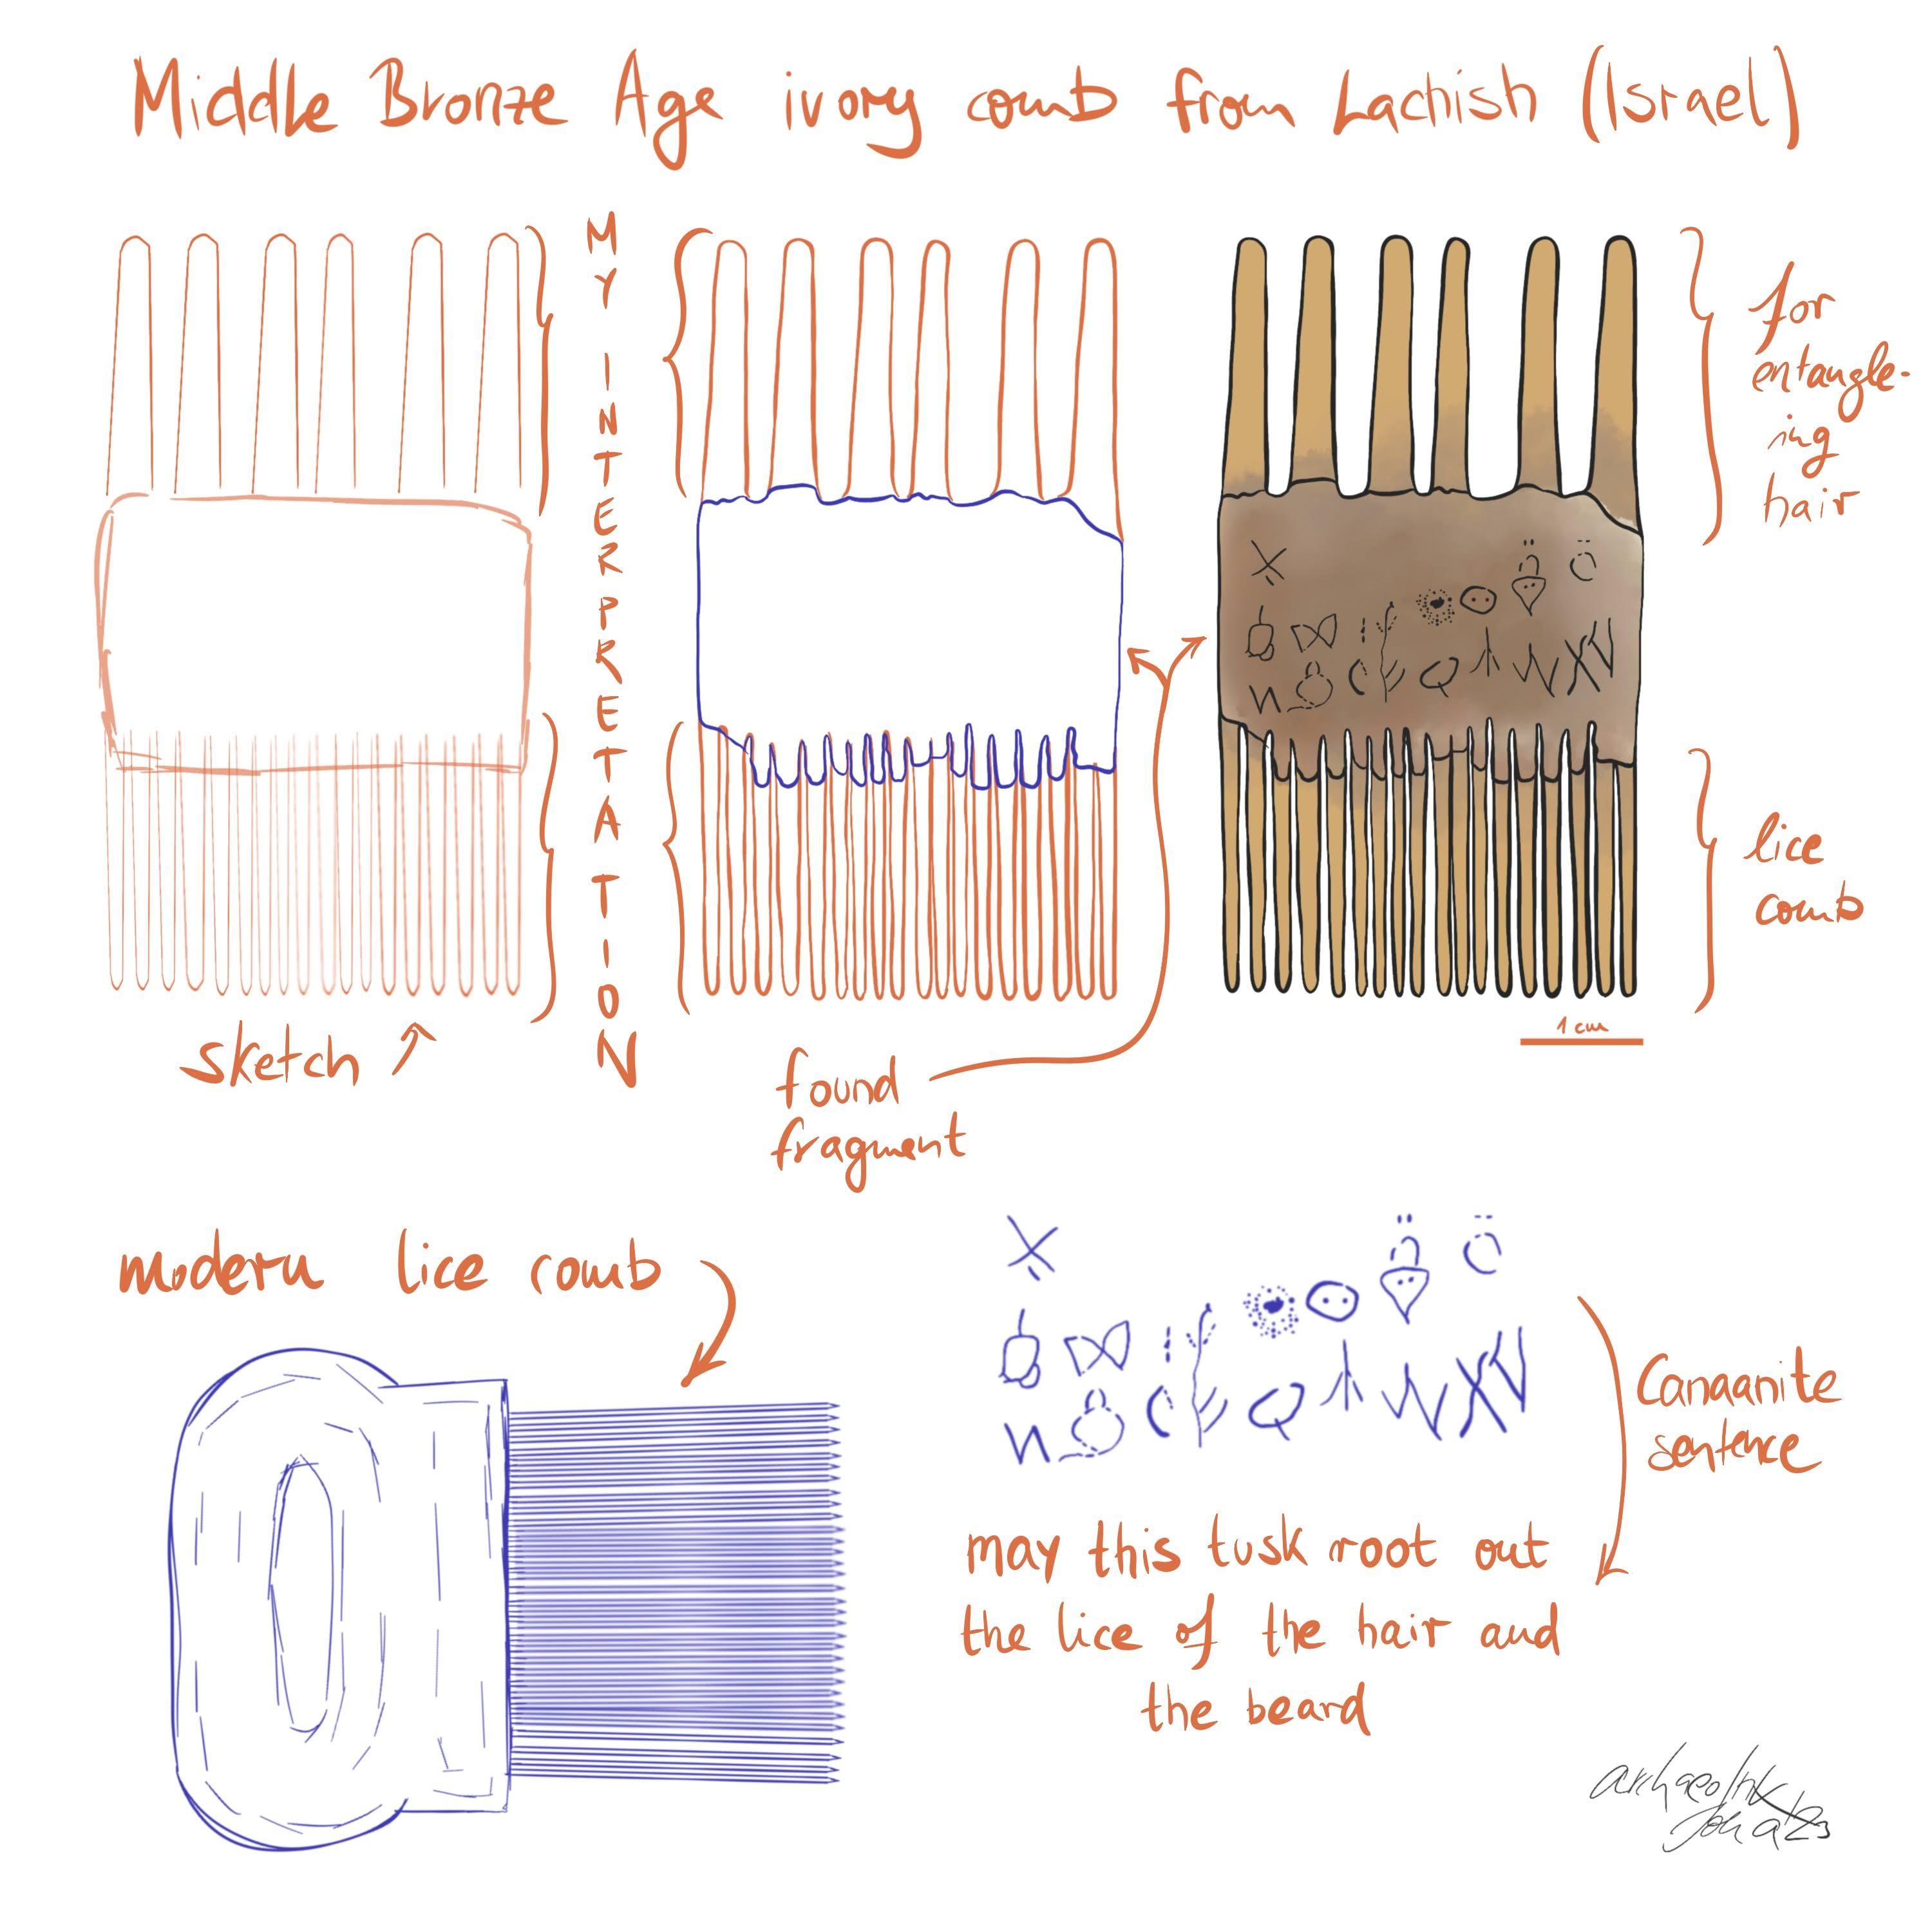 Middle Bronze Age ivory comb from Lachish (Israel)
MY INTERPRETATION
for
entangle-
ing
hair
lice
comb
1 cm
sketch
found
fragment
modern lice comb
Canaanite
sentence
may this tusk root out
the lice of the hair and
the beard